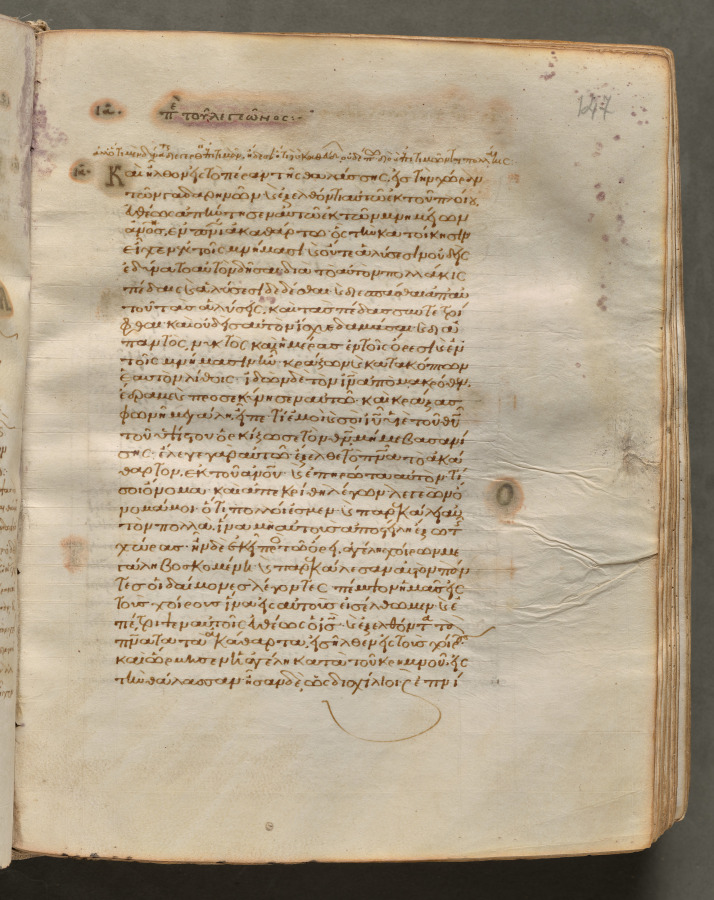 ια. πε τοῦ λεγεῶνος:
147
ια. Καὶ ἦλθον εἰς τὸ πέραν τῆς θαλάσσης, εἰς τὴν χώραν
τῶν γαδαρηνῶν· καὶ ἐξελθόντι αὐτῶ ἐκ τοῦ πλοίου,
εὐθέως ἀπήντησεν αὐτῶ ἐκ τῶν μνημείων
ἄνος, ἐν πνι ἀκαθάρτω· ὃς τὴν κατοίκησιν
εἶχεν ἐν τοῖς μνήμασι· καὶ οὔτε ἁλύσεσιν οὐδεὶς
ἐδύνατο αὐτὸν δῆσαι· διὰ τὸ αὐτὸν πολλάκις
πέδαις καὶ ἁλύσεσι δεδέσθαι· καὶ διεσπάσθαι ὑπ' αὐ
τοῦ τὰς ἁλύσεις, καὶ τὰς πέδας συντετρί
φθαι· καὶ οὐδεὶς αὐτὸν ἴσχυε δαμάσαι· καὶ δια
παντὸς, νυκτὸς καὶ ἡμέρας ἐν τοῖς ὄρεσι καὶ ἐν
τοῖς μνήμασιν ἦν κράζων καὶ κατακόπτων
ἑαυτὸν λίθοις· ἰδὼν δὲ τὸν ιν ἀπὸ μακρόθεν,
ἔδραμε καὶ προσεκύνησεν αὐτῶ· καὶ κράξας
φωνῆ μεγάλη, εἶπε· τί ἐμοὶ καὶ σοὶ ιυ υἱὲ τοῦ θυ
τοῦ ὑψίστου· ὁρκίζω σε τὸν θν, μή με βασανί
σης· ἔλεγε γὰρ αὐτῶ· ἔξελθε τὸ πνα τὸ ἀκά
θαρτον, ἐκ τοῦ ανου· καὶ ἐπηρώτα αὐτὸν τί
σοι ὄνομα· καὶ ἀπεκρίθη λέγων λεγεὼν ὄ
νομα μοι· ὅτι πολλοί ἐσμεν· καὶ παρεκάλει αὐ
τὸν πολλὰ, ἵνα μὴ αὐτοὺς ἀποστείλη ἔξω τ
χώρας· ἦν δὲ ἐκεῖ πρὸς τῶ ὄρει, ἀγέλη χοίρων με
γάλη βοσκομένη· καὶ παρεκάλεσαν αὐτὸν πάν
τες οἱ δαίμονες λέγοντες· πέμψον ἡμᾶς εἰς
τοὺς χοίρους ἵνα εἰς αὐτοὺς εἰσέλθωμεν· καὶ ἐ
πέτρεψεν αὐτοῖς εὐθέως ὁ ις· καὶ ἐξελθόντα τὰ
πνατα τὰ ἀκάθαρτα, εἰσῆλθεν εἰς τοὺς χοίρ
καὶ ὥρμησεν ἡ ἀγέλη κατὰ τοῦ κρημνοῦ εἰς
τὴν θάλασσαν· ἦσαν δὲ, ὡς δισχίλιοι· καὶ ἐπνί